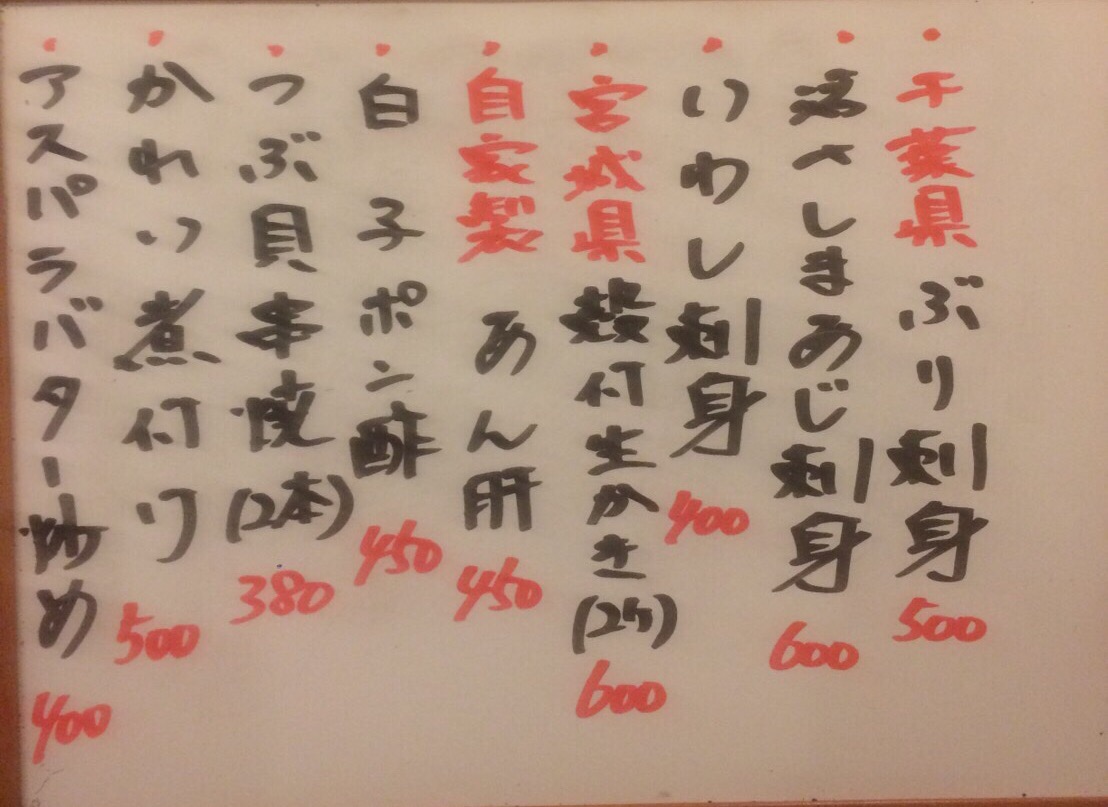 ・千葉県ぶり刺身 500
・活〆しまあじ刺身 600
・いわし刺身 400
・宮城県殻付生かき(2ケ) 600
・自家製 あん肝 450
・白子ポン酢 450
・つぶ貝串焼(2本) 380
・かれい煮付け 500
・アスパラバター炒め 400